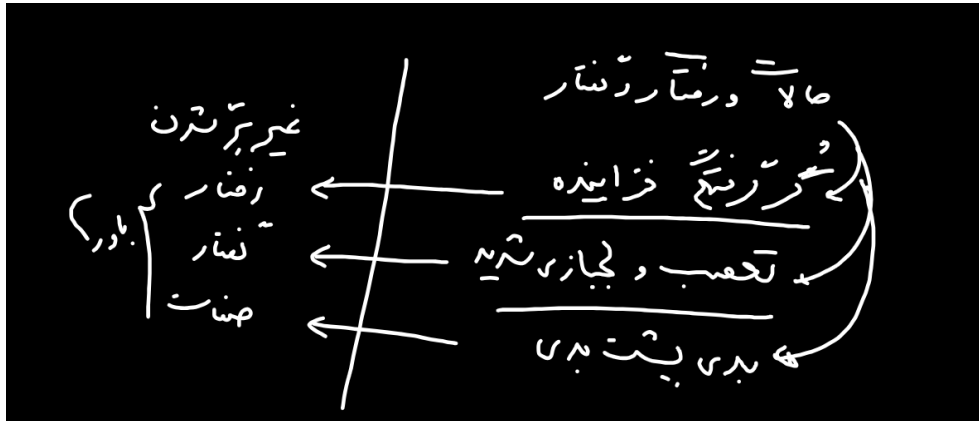 حالات و رفتار و گفتار
گُر گرفتگی فزاینده
تعصب و لجبازی شدید
بدی پشت بدی
غیر بَرّ شدن
رفتار
گفتار
صفات
باور؟